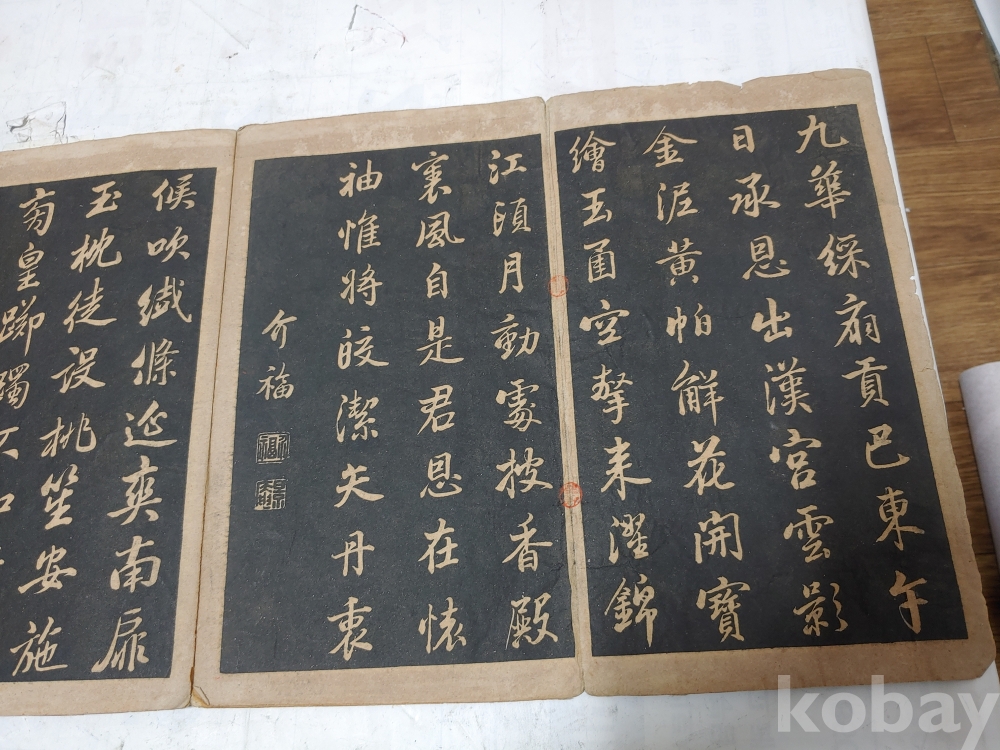 九華綵扇貢巴東午
日承恩出漢宮雲影
金泥黃帕解花開寶
繪玉函空擎来濯錦
江頭月動處披香殿
裏風自是君恩在懐
袖惟將皎潔矢丹衷
介福
候吹纖絛延爽南扉
玉枕徒设桃笙安施
皇躑躅
kobay